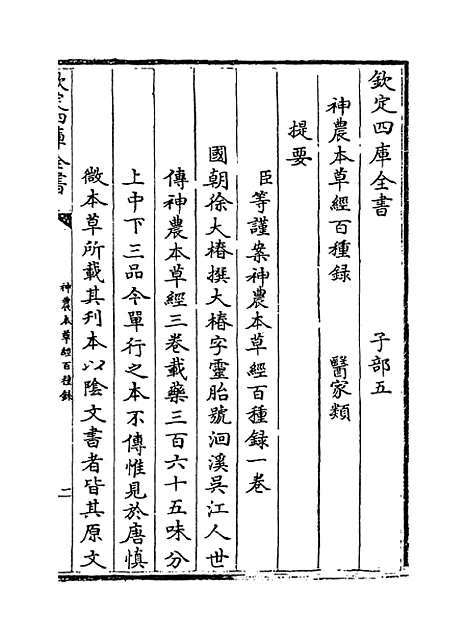 欽定四庫全書　子部五
神農本草經百種録　醫家類
提要
臣等謹案神農本草經百種録一卷
國朝徐大椿撰大椿字靈胎號洄溪吳江人世
傳神農本草經三卷載藥三百六十五味分
上中下三品今單行之本不傳惟見於唐慎
微本草所載其刊本以陰文書者皆其原文
欽定四庫全書
神農本草經百種録